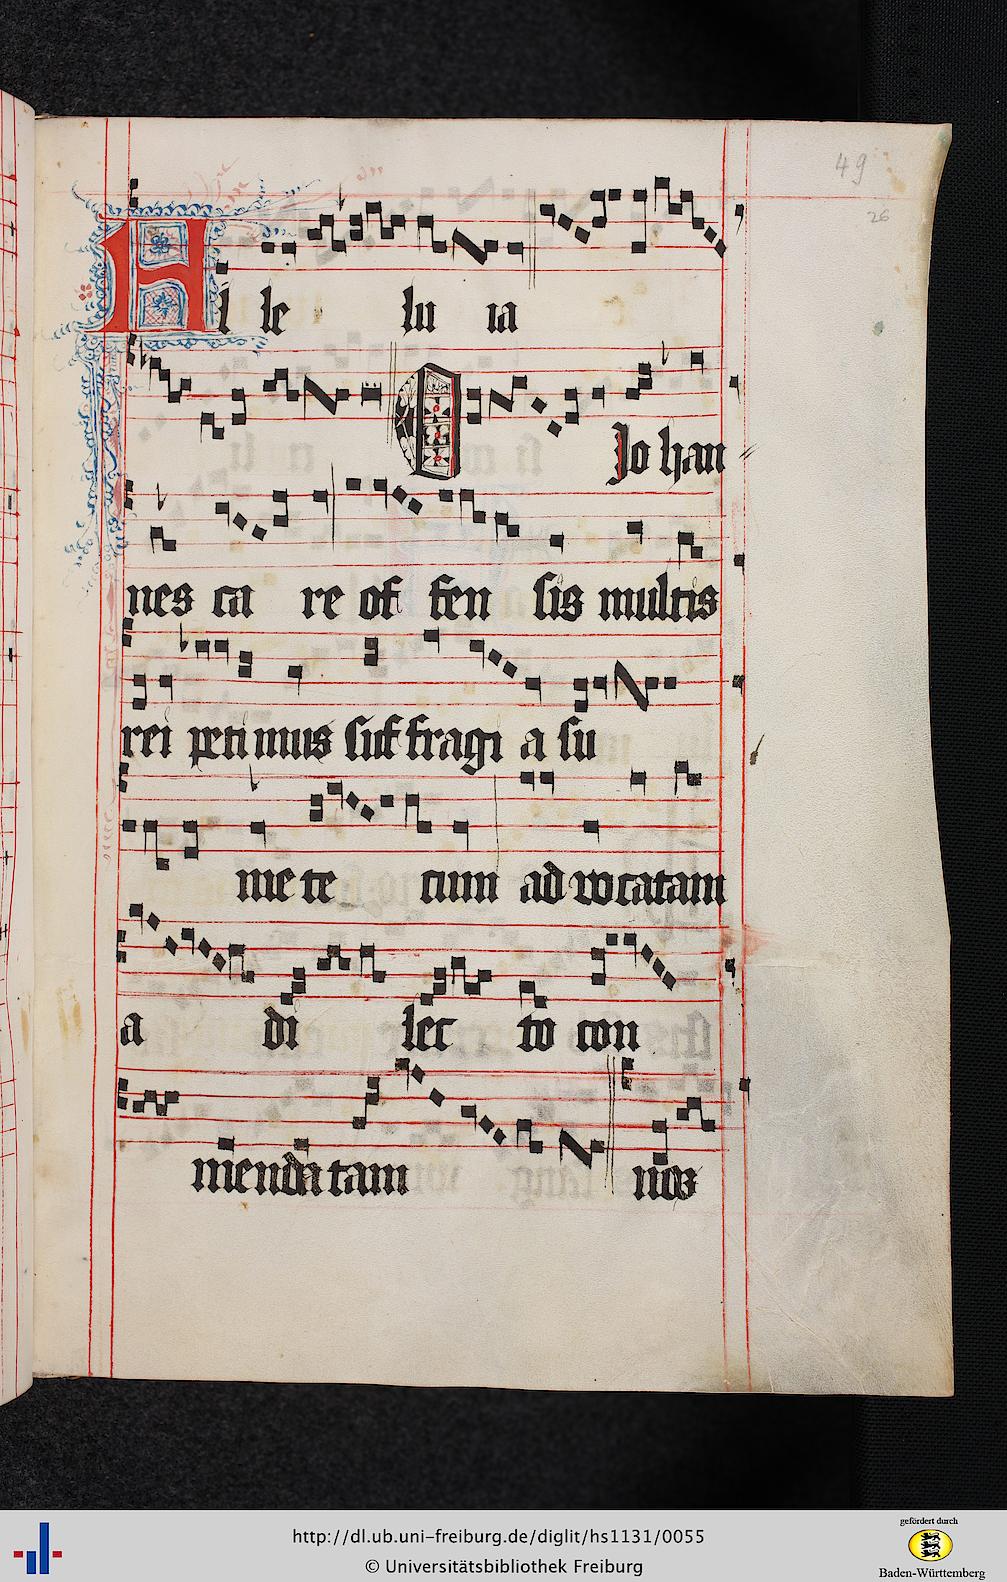 49
26
Al le lu ia
O Johan
nes ca re of fen sis multis
rei peti mus suf fragi a su
me te cum ad vocatam
a di lec to con
menda tam nob
http://dl.ub.uni-freiburg.de/diglit/hs1131/0055
© Universitätsbibliothek Freiburg
gefördert durch
Baden-Württemberg